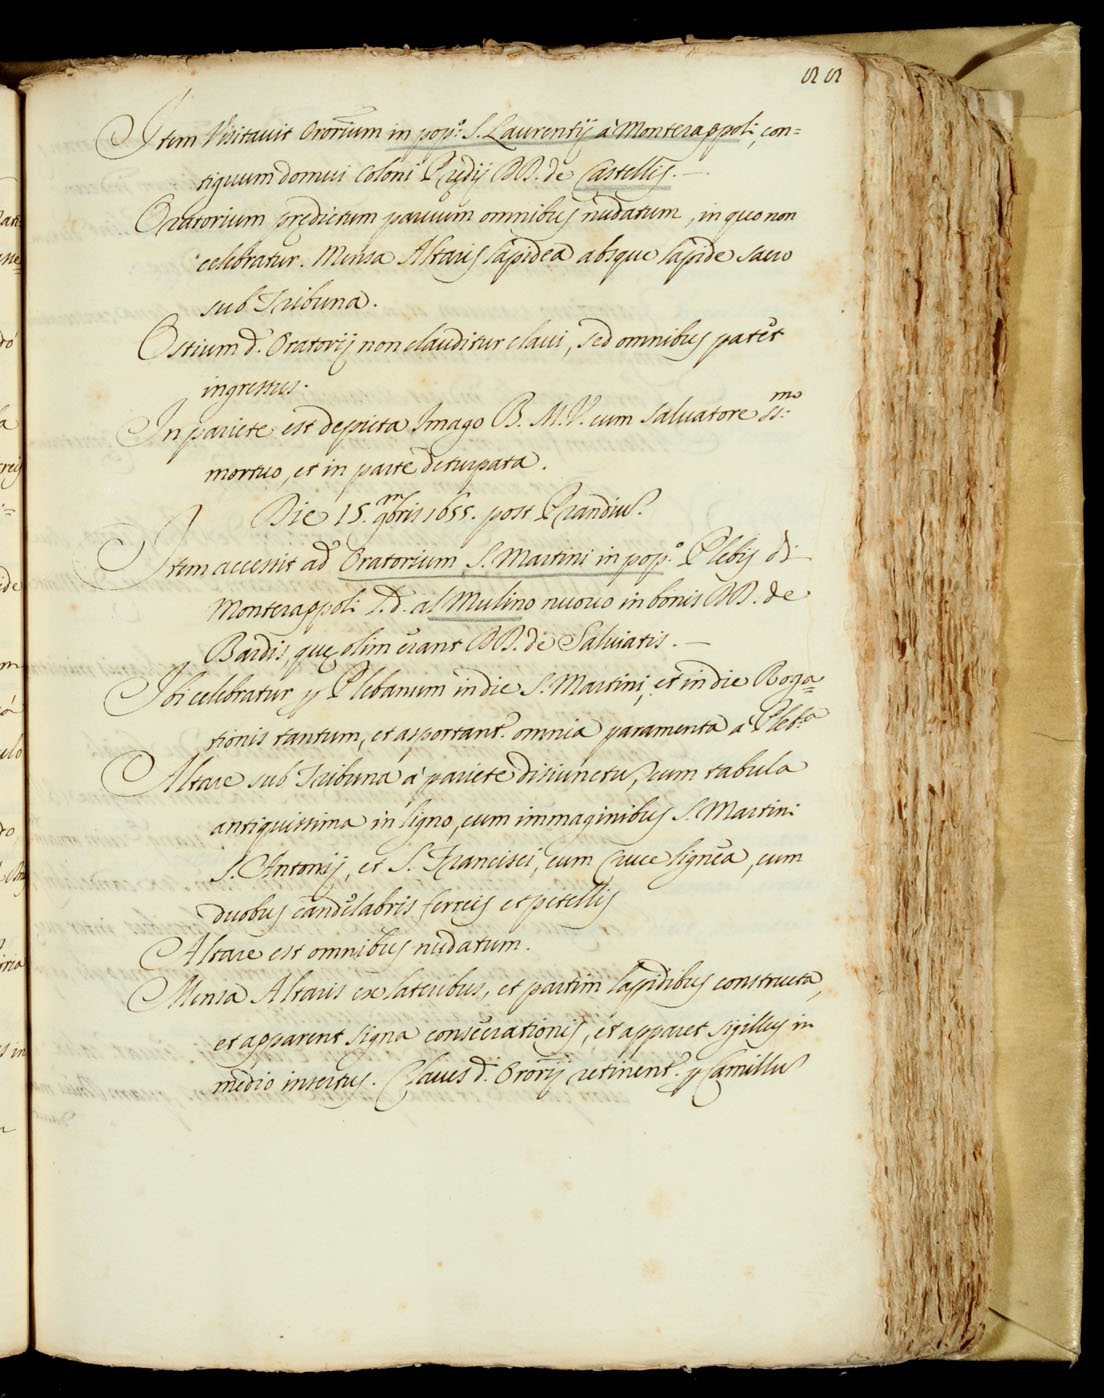 55
Item Visitavit Ororium in pop.º S. Laurentij à Monterappoli, con=
tiguum domui Coloni Prędij DD. de Castellis. —
Oratorium prędictum parvum omnibus nudatum, in quo non
celebratur. Mensa Altaris lapidea absque lapide sacro
sub Tribuna.
Ostium d.ⁱ Oratorij non clauditur clavi, sed omnibus patet
ingressus.
In pariete est depicta Imago B. M. V. cum Salvatore ss:ᵐᵒ
mortuo, et in parte deturpata.
Die 15. 9mbris 1655. post Prandiu.
Item accessit ad Oratorium S. Martini in pop.º Plebis di
Monterappoli l.d. al Mulino nuovo in bonis DD. de
Bardis, quę olim erant DD. de Salviatis. —
Ibi celebratur p Plebanum in die S. Martini, et in die Roga=
tionis tantum, et asportant.ʳ omnia paramenta à Pleb.ª
Altare sub Tribuna à pariete disiunctu, cum tabula
antiquissima in ligno, cum immaginibus S. Martini
S. Antonij, et S. Francisci, cum Cruce lignea, cum
duobus candelabris ferreis et petellis
Altare est omnibus nudatum.
Mensa Altaris ex lateribus, et partim lapidibus constructa,
et apparent signa consecrationis, et apparet sigillus in
medio insertus. Claves d.ⁱ Ororij retinent.ʳ p Camillu